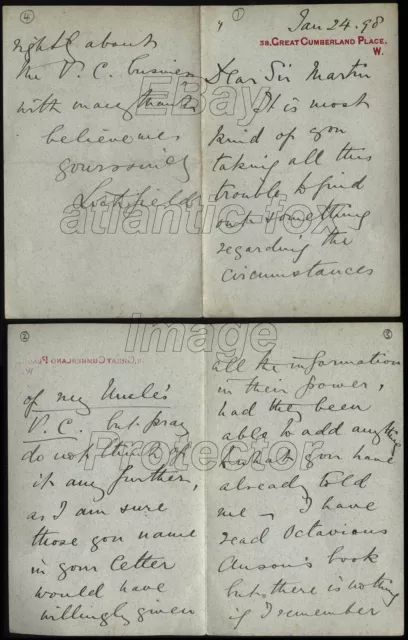 1
Jan 24. 98
38, GREAT CUMBERLAND PLACE,
W.
Dear Sir Martin
It is most
kind of you
taking all this
trouble to find
out something
regarding the
circumstances
2
of my Uncle's
V.C. but pray
do not think of
it any further,
as I am sure
those you name
in your letter
would have
willingly given
3
all the information
in their power,
had they been
able to add anything
to what you have
already told
me – I have
read Octavious
Anson's book
but there is nothing
if I remember
4
right about
the V.C. business
with many thanks
believe me
yours sincerely
Lichfield
EBay
atlantic-fox
Image
Protector